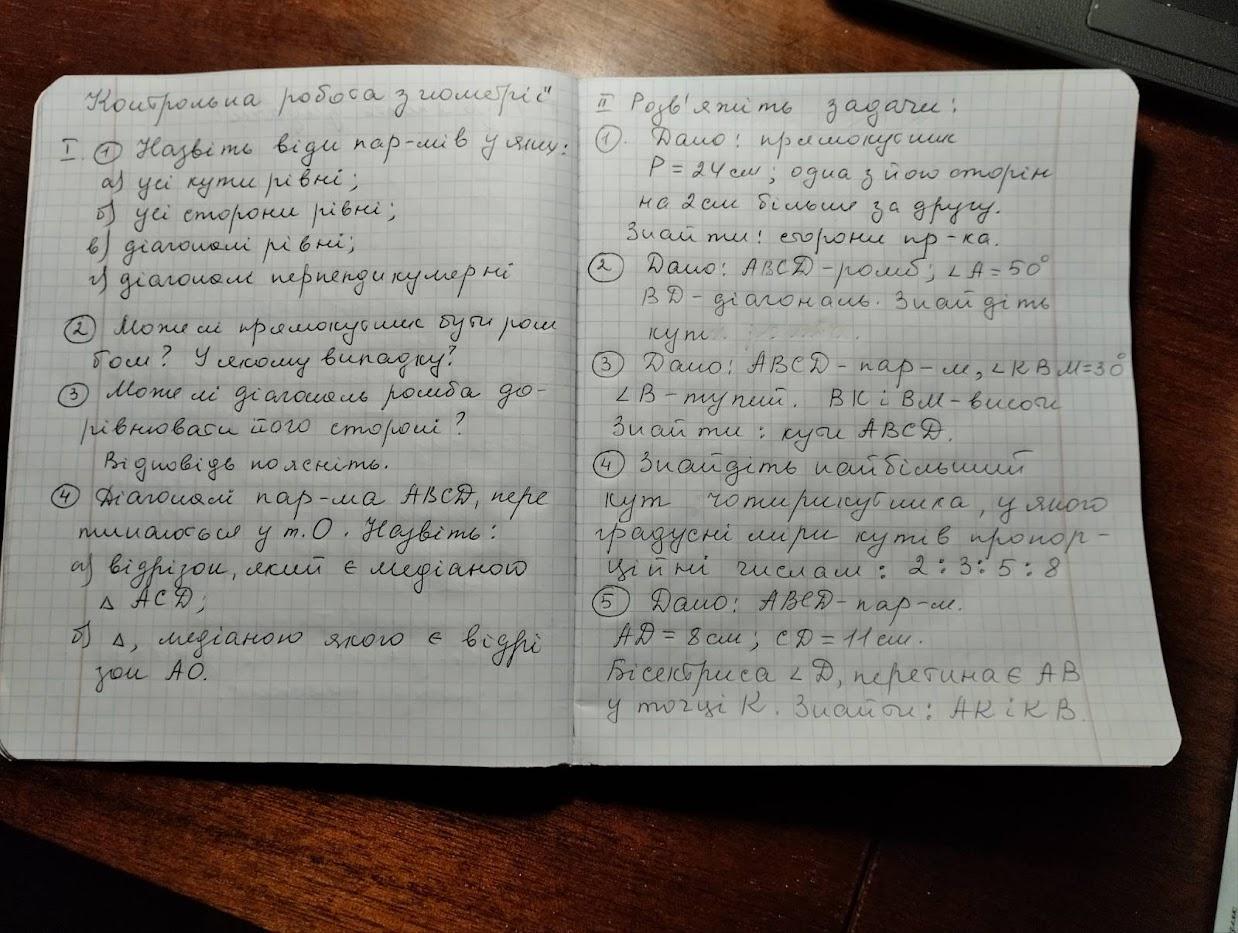 Контрольна робота з геометрії"
I. ① Назвіть види пар-мів у яких:
а) усі кути рівні;
б) усі сторони рівні;
в) діагоналі рівні;
г) діагоналі перпендикулярні
② Може лі прямокутник бути ром
бом? У якому випадку?
③ Може лі діагональ ромба до-
рівнювати його стороні?
Відповідь поясніть.
④ Діагоналі пар-ма ABCD, пере
тинаються у т. О. Назвіть:
а) відрізок, який є медіаною
△ ACD;
б) △, медіаною якого є відрі
зок АО.
II Розв'яжіть задачи:
①. Дано: прямокутник
Р = 24 см; одна з його сторін
на 2 см більше за другу.
Знайти: сторони пр-ка.
② Дано: ABCD - ромб; ∠A = 50°
BD - діагональ. Знайдіть
кут
③ Дано: ABCD - пар-м, ∠KBM=30°
∠B - тупий. BK і BM - висоти
Знайти: кути ABCD.
④ Знайдіть найбільший
кут чотирикутника, у якого
градусні міри кутів пропор-
ційні числам: 2:3:5:8
⑤ Дано: ABCD - пар-м.
AD = 8 см; CD = 11 см.
Бісектриса ∠D, перетинає AB
у точці K. Знайти: AK і KB.